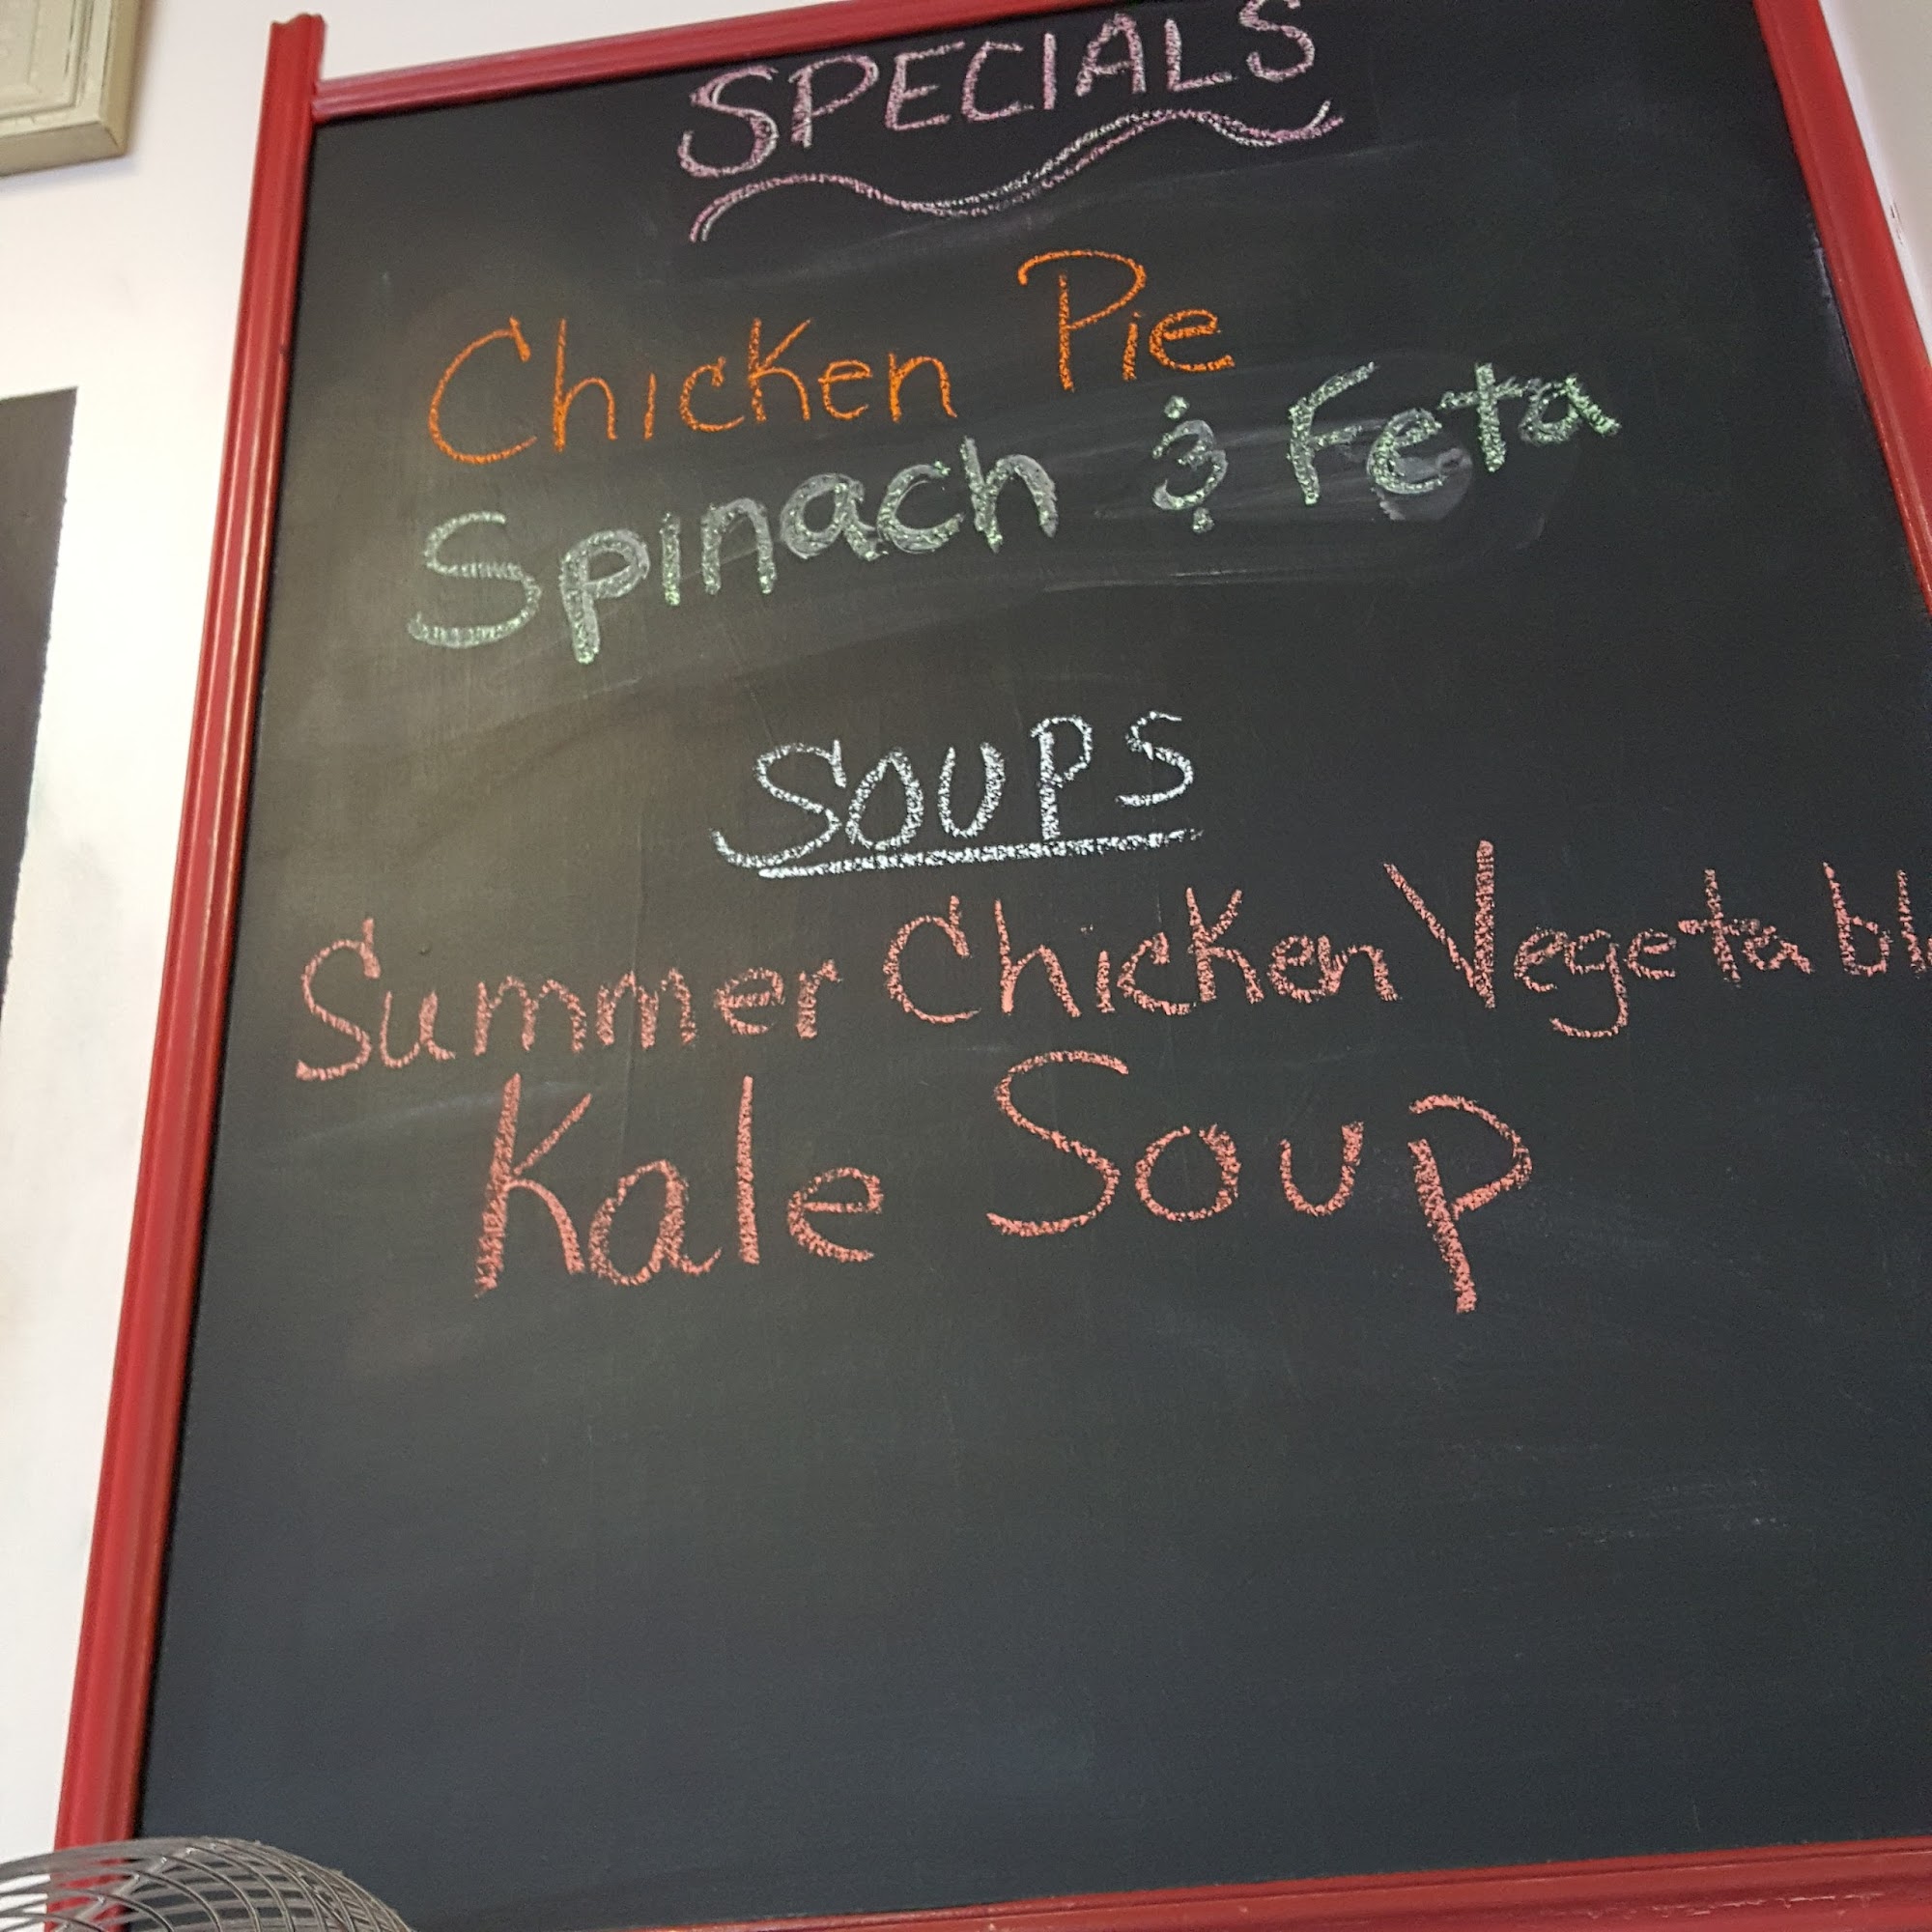 SPECIALS
Chicken Pie
Spinach & Feta
SOUPS
Summer Chicken Vegetabl
Kale Soup